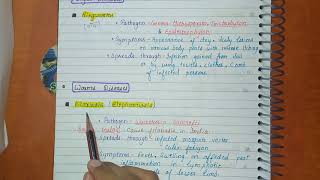 Ringworm
• Pathogen - Genera Microsporum, Trichophyton
& Epidermophyton
• Symptoms - Appearance of dry, scaly lesions
on various body parts with intense itching
• Spreads through - from soil
or by using towels, clothes, comb
of infected persons
Worms Diseases
Filariasis (Elephantiasis)
• Pathogen - Wuchereria bancrofti
cause filariasis in India
• Spreads through - infected mosquito vector
culex
Symptoms - Fever, Swelling on affected part
inflammation in lymphatic
of lower limb